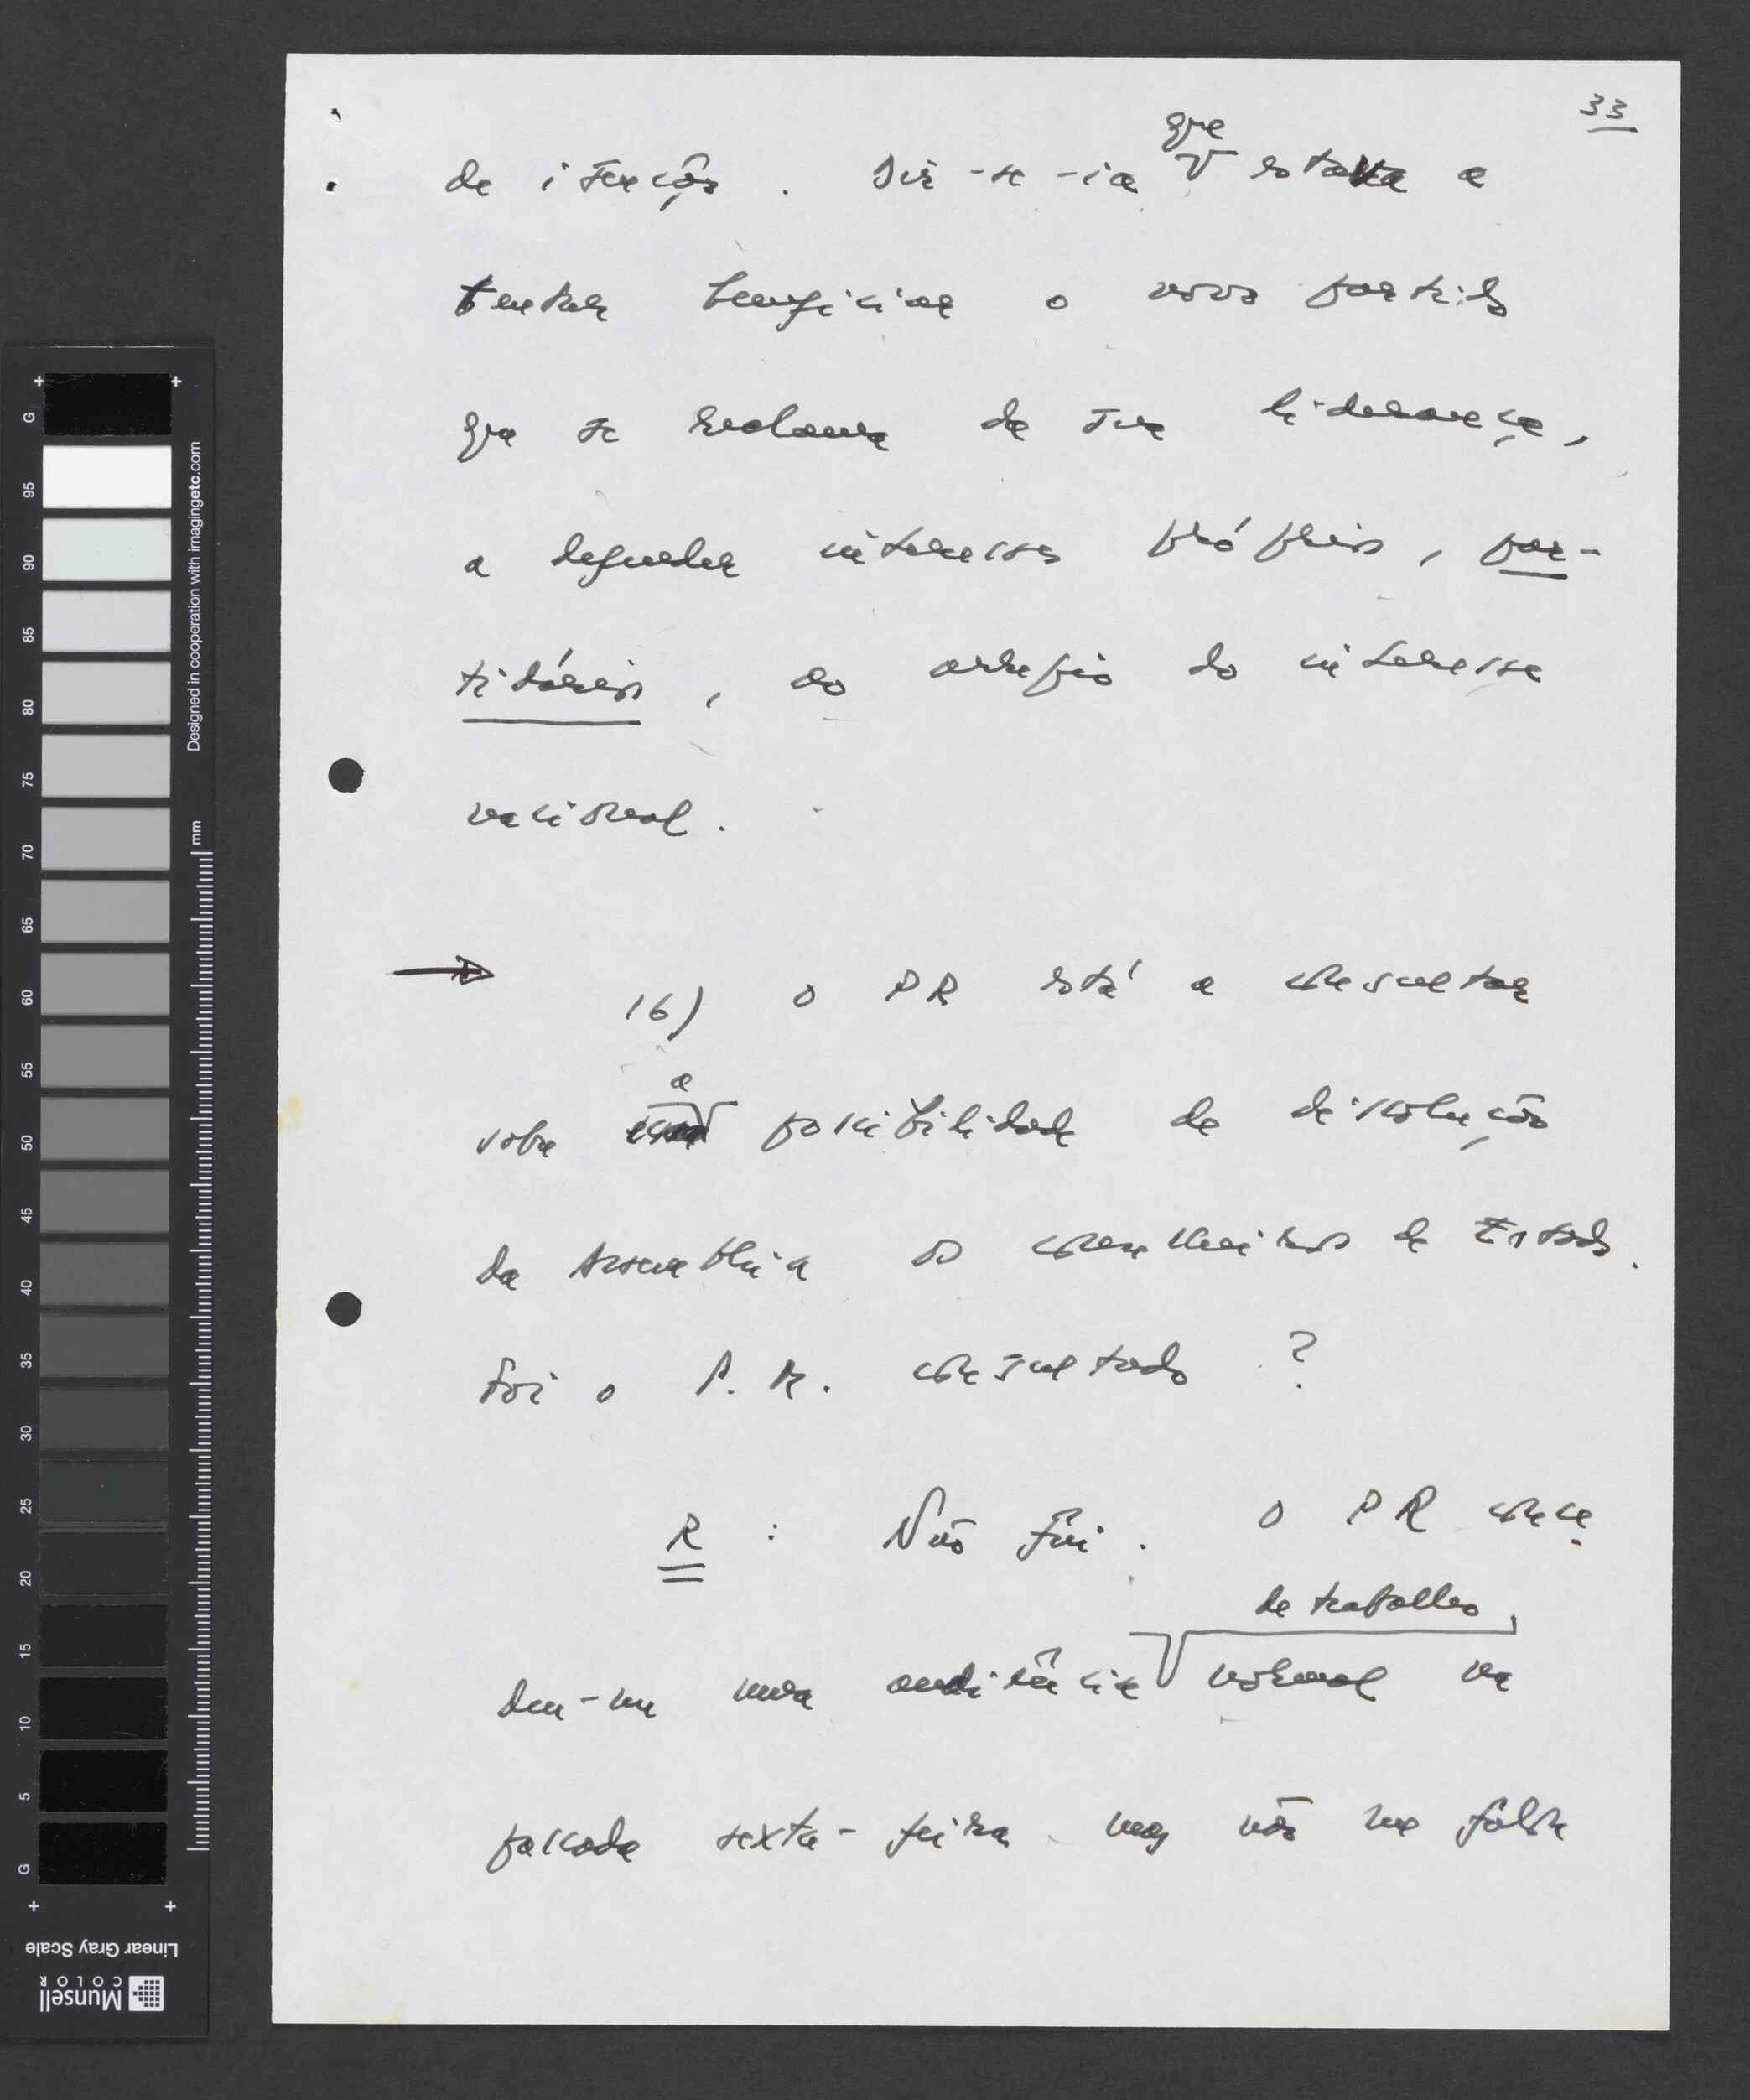 33
que
de isenção. Dir-se-ia estava a
tentar beneficiar o novo partido
que se reclama da sua liderança,
a defender interesses próprios, par-
tidários, ao arrepio do interesse
nacional.
16) O PR está a consultar
a
sobre possibilidade de dissolução
da Assembleia os conselheiros de Estado.
Foi o P.M. consultado?
R: Não foi. O PR conce-
de trabalho,
deu-me uma audiência normal na
passada sexta-feira mas não me falou
G
95
90
85
80
75
70
65
60
55
50
45
40
35
30
25
20
15
10
5
G
Designed in cooperation with imagingetc.com
mm
Linear Gray Scale
Munsell
COLOR